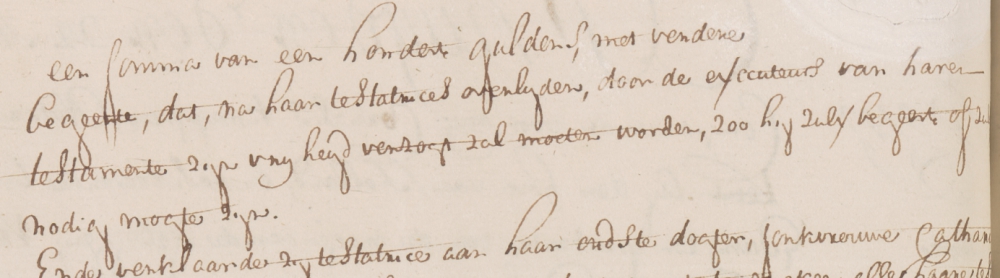 een somma van een hondert guldens, met verdere
begeerte, dat, na haar testatrices overlyden, door de executeurs van haren
testamente zijn vryheyd verzogt zal moeten worden, zoo hy zulx begeert, of zul
nodig mogte zijn.
Ende verklaarde zy testatrice aan haar oudste dogter, Jonkvrouwe Cathar